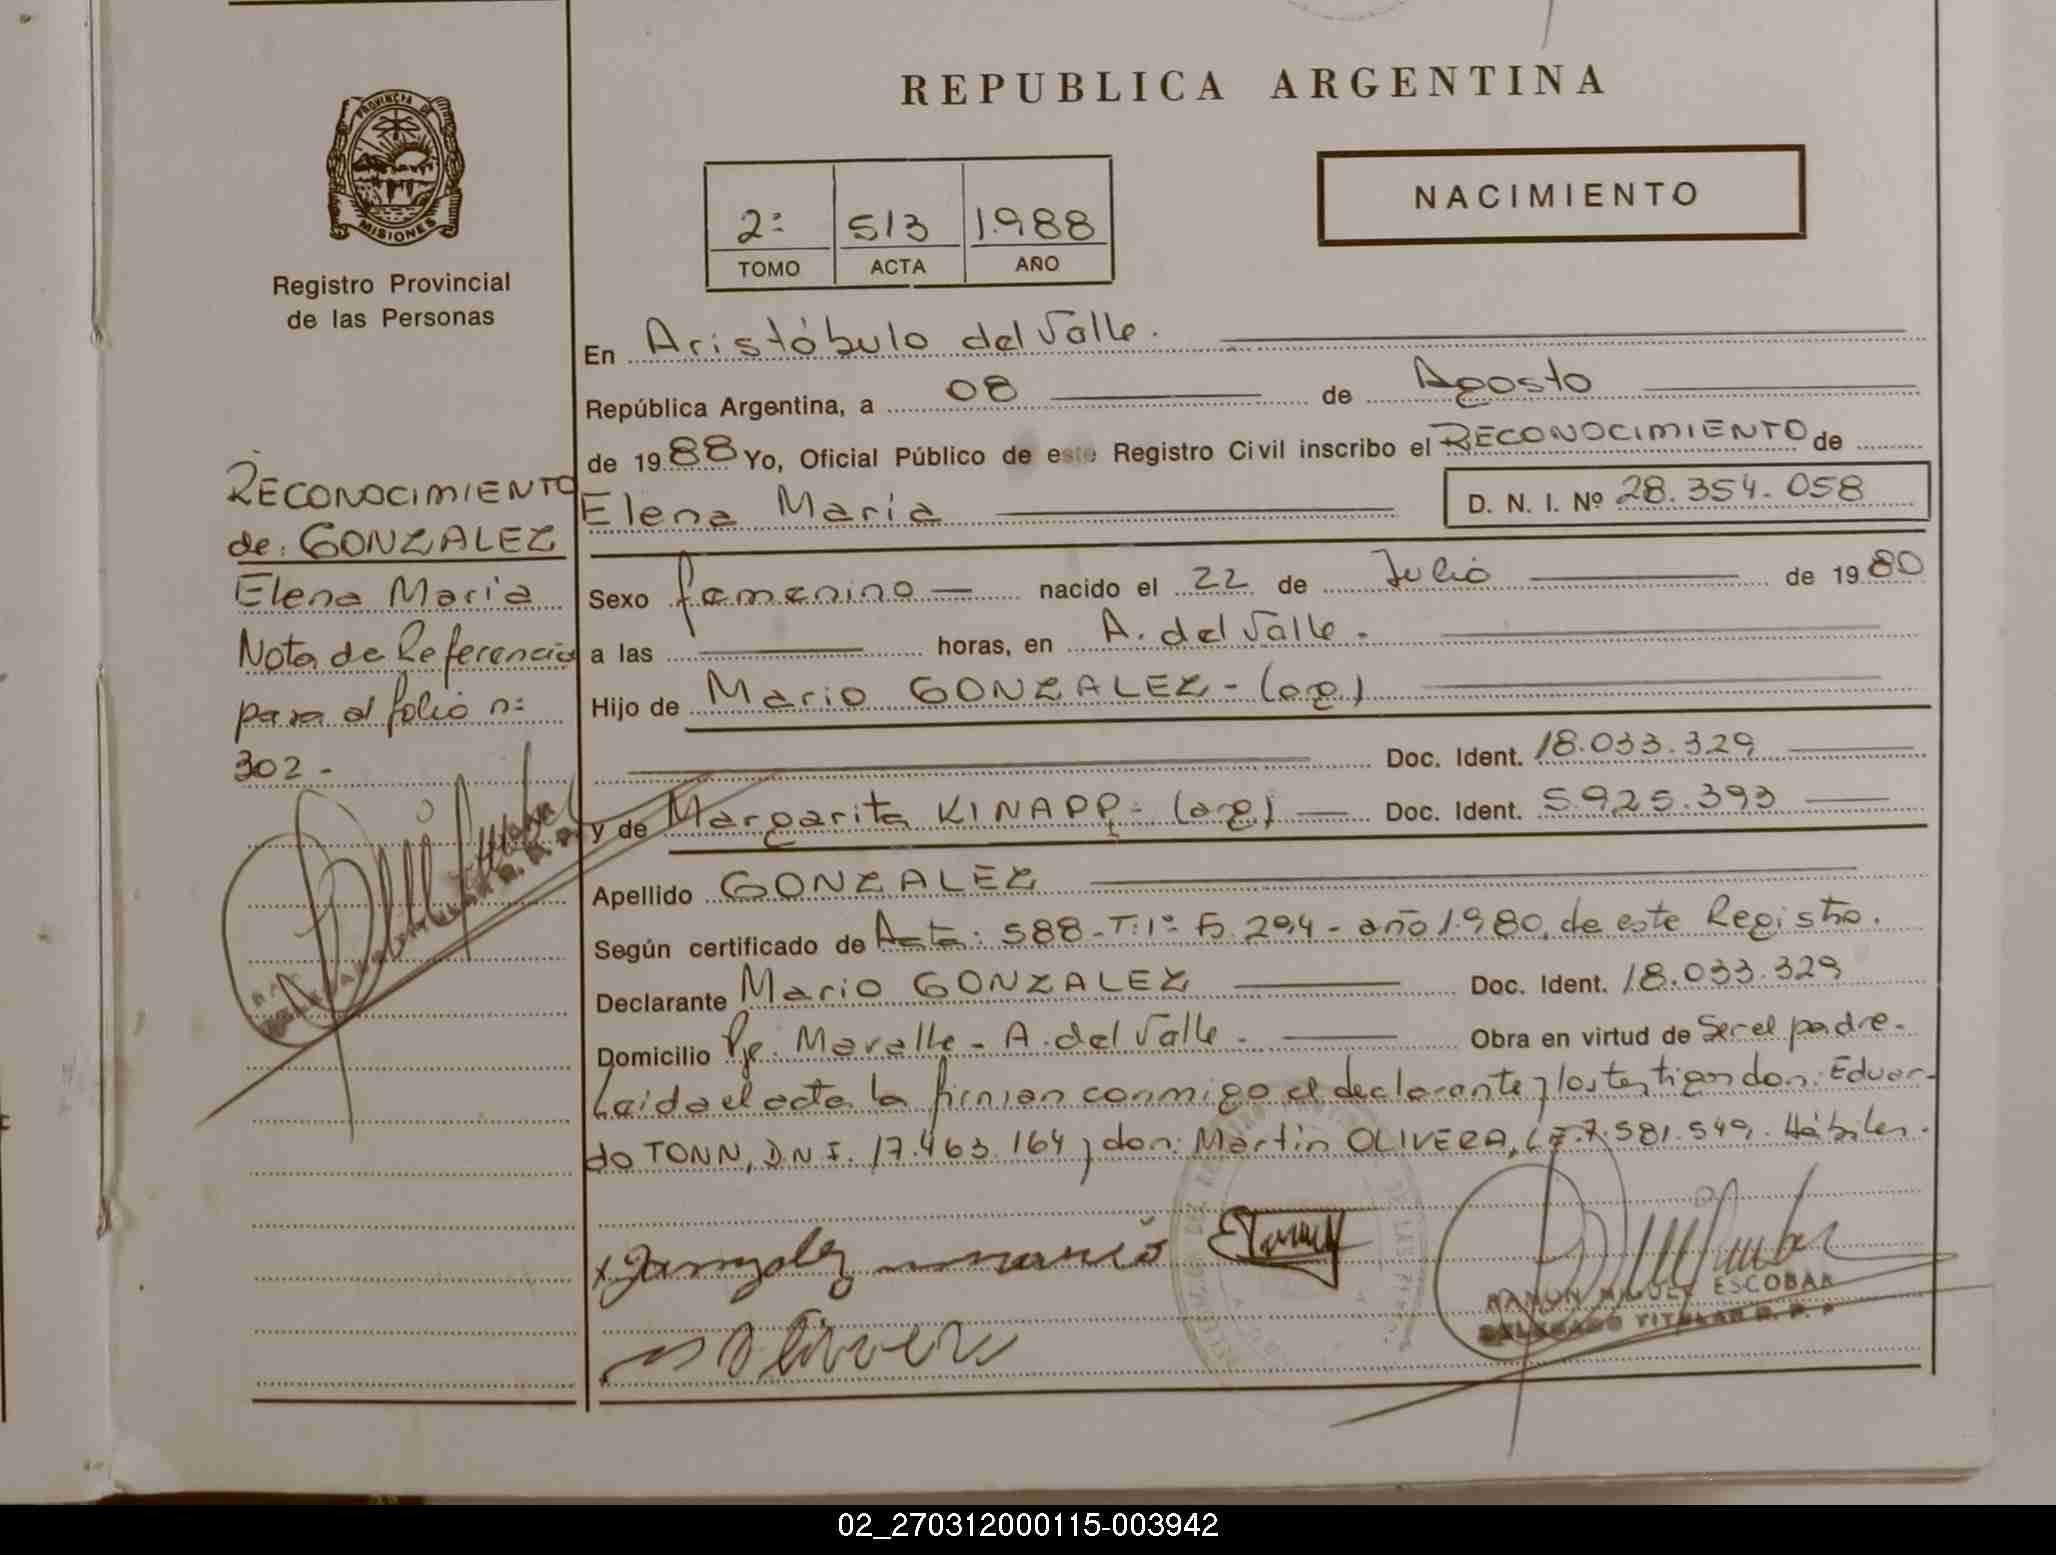 REPUBLICA ARGENTINA
PROVINCIA DE
MISIONES
Registro Provincial
de las Personas
2º
513
1.988
TOMO
ACTA
AÑO
NACIMIENTO
RECONOCIMIENTO
de: GONZALEZ
Elena Maria
Nota de Referencia
para el folio nº
302 -
En Aristóbulo del Valle.
República Argentina, a 08 de Agosto
de 1988 Yo, Oficial Público de este Registro Civil inscribo el RECONOCIMIENTO de
Elena Maria D. N. I. Nº 28.354.058
Sexo femenino nacido el 22 de Julio de 1980
a las horas, en A. del Valle.
Hijo de Mario GONZALEZ - (arg)
Doc. Ident. 18.033.329
y de Margarita KINAPP - (arg) Doc. Ident. 5.925.393
Apellido GONZALEZ
Según certificado de Acta: 588-T:1º F. 294 - año 1.980, de este Registro.
Declarante Mario GONZALEZ Doc. Ident. 18.033.329
Domicilio Pje. Maralle - A. del Valle. Obra en virtud de Ser el padre.
Leida el acta la firman conmigo el declarante y los testigos don: Eduar-
do TONN, D.N.I. 17.463.164 y don: Martin OLIVERA, L.E. 7.581.549. Hábiles.
x Gonzalez mario ETonn
Olivera
RAMON MIGUEL ESCOBAR
DELEGADO TITULAR R. P. P
02_270312000115-003942